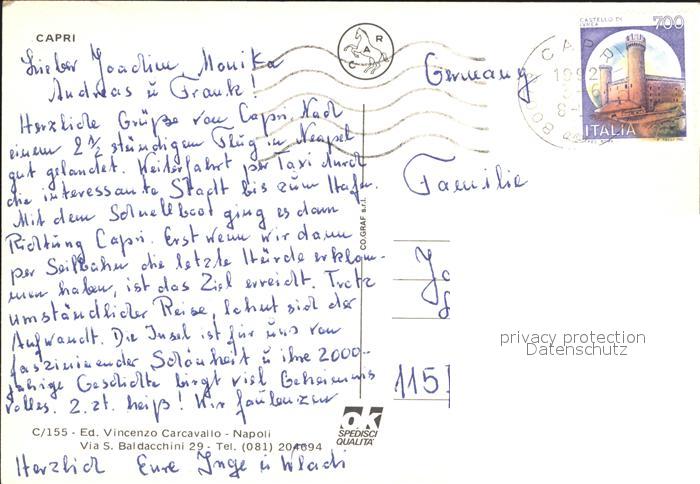 CAPRI
Lieber Joachim Monika
Andreas u Frank!
Herzliche Grüße von Capri. Nach
einem 2 1/2 stündigem Flug in Neapel
gut gelandet. Weiterfahrt per Taxi durch
die interessante Stadt bis zum Hafen.
Mit dem Schnellboot ging es dann
Richtung Capri. Erst wenn wir dann
per Seilbahn die letzte Hürde erklom-
men haben, ist das Ziel erreicht. Trotz
umständlicher Reise, lohnt sich der
Aufwandt. Die Insel ist für uns von
faszinierender Schönheit u ihre 2000-
jährige Geschichte birgt viel Geheimnis
volles. z.zt. heiß! Wir faulenzen
C/155 - Ed. Vincenzo Carcavallo - Napoli
Via S. Baldacchini 29 - Tel. (081) 204694
Herzlich Eure Inge u Wladi
CO.GRAF s.r.l.
ok
SPEDISCI
QUALITÀ
Germany
Familie
115
CASTELLO DI
IVREA
700
ITALIA
CAPRI
1992
privacy protection
Datenschutz